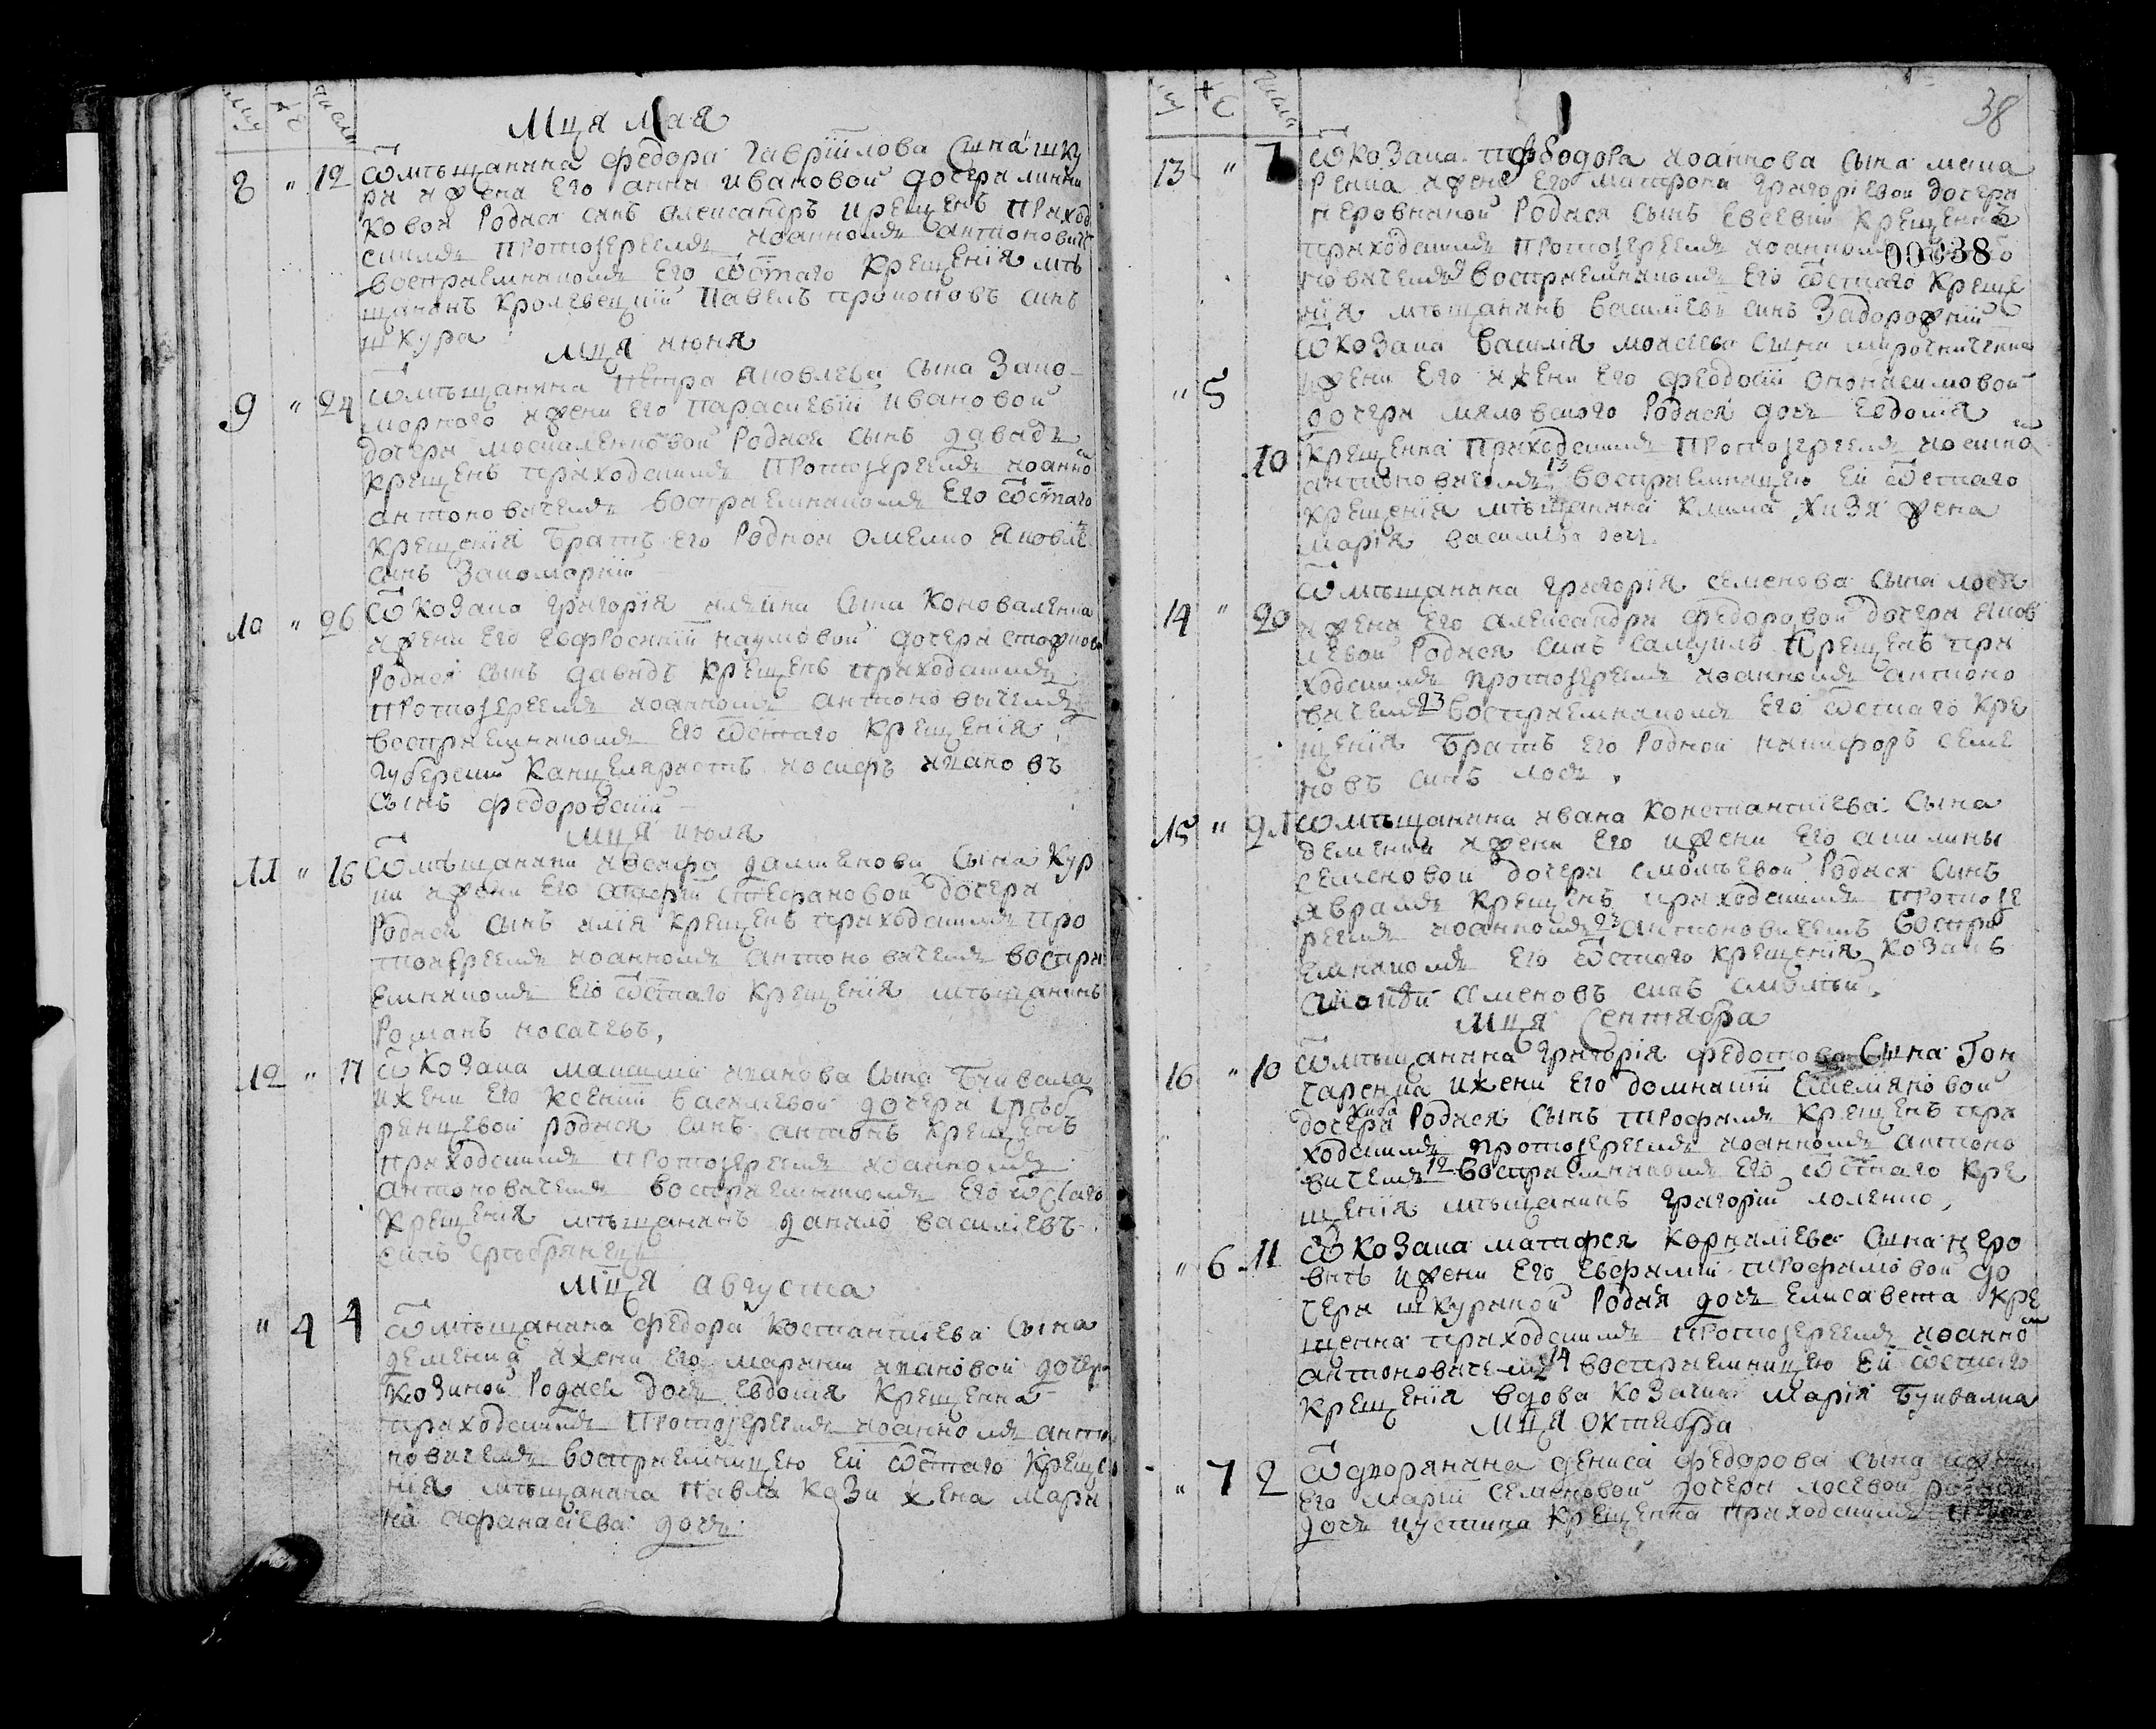 Мця Мая
8 " 12 Ѿ мѣщанина федора Гавріилова Сына шку
ры и жена Его анни ивановой дочери
ковои Родися синъ александръ крещенъ Приход
скимъ Протоіереемъ иоанномъ антонович
восприемникомъ Его Ѿ стаго Крещенія мѣ
щанинъ Кролевецкій Павелъ синъ
шкура
Мця июня
9 " 24 Ѿ мѣщанина Петра яковлева Сына Запо
морного и жени Его Параскевіи ивановой
дочери москаленковой Родися сынъ давидъ
крещенъ приходскимъ Протоіереемъ иоанно
антоновичемъ восприемникомъ Его Ѿ стаго
крещенія братъ его Роднои омелко яковле
синъ Запоморній
10 " 26 Ѿ Козака григорія Сына Коноваленка
и жени Его Евфросиніи наумовой дочери
Родися сынъ давидъ крещенъ приходскимъ
Протоіереемъ иоанномъ антоновичемъ
восприемникомъ Его Ѿ стаго крещенія
губерскій Канцеляристъ иосифъ ивановъ
сынъ федоровскій
Мця июля
11 " 16 Ѿ мѣщанини иосифа Сына Кур
и жени Его агафіи Стефановой дочери
Родися сынъ илія крещенъ приходскимъ про
тоиереемъ иоанномъ антоновичемъ воспри
емникомъ Его Ѿ стаго крещенія мѣщанинъ
Романъ носачевъ,
12 " 17 Ѿ Козака максима иванова Сына Бувала
и жени Его Ксеніи василіевой дочери Срѣб
ранцевой родися синъ антонъ крещенъ
приходскимъ протоіереемъ иоанномъ
антоновичемъ восприемникомъ Его Ѿ стаго
крещенія мѣщанинъ данило василіевъ
синъ срѣбрянецъ
Мця августа
" 4 4 Ѿ мѣщанина федора Костантіева Сына
деменка и жени Его марини ивановой дочери
Козиной Родися дочь Евдокія Крещенна
приходскимъ Протоіереемъ иоанномъ антон
новичемъ восприемницею Ей Ѿ стаго Креще
нія мѣщанина Павла Кози жена Мари
на афанасіева дочь
38
00038
13 " 7 Ѿ Козака феодора иоаннова сына мака
ренка и жени Его матрони григоріевои дочери
Перовниной Родися сынъ Евсевій крещеннъ
приходскимъ Протоіереемъ иоанномъ
новичемъ восприемникомъ Его Ѿ стаго Креще
нія мѣщанинъ василіевъ синъ Задорожній
" 5 Ѿ Козака василія моисіева Сына мирочниченка
и жени Его и жени Его феодосіи
дочери маловского Родися дочь Евдокія
10 крещенна Приходскимъ Протоіереемъ иоанно
антоновичемъ 13 восприемницею Ей Ѿ стаго
крещенія мѣщанина Клима Хизя жена
марія василіева дочь.
14 " 20 Ѿ мѣщанина григорія семенова Сына лося
и жени Его александри федоровой дочери яков
левой Родися синъ самуилъ Крещенъ при
ходскимъ протоіереемъ иоанномъ антоно
вичемъ 23 восприемникомъ Его Ѿ стаго Кре
щенія братъ Его Роднои никифоръ семе
новъ синъ лось.
15 " 21 Ѿ мѣщанина ивана Константіева Сына
деменка и жени Его и жени Его акилины
семеновой дочери Родися синъ
авраамъ крещенъ приходскимъ протоіе
реемъ иоанномъ 23 антоновичемъ воспри
емникомъ Его Ѿ стаго крещенія Козакъ
семеновъ синъ
Мця Сентября
16 " 10 Ѿ мѣщанина григорія федотова Сына Гон
чаренка и жени Его домникіи Емелянової
дочери Родися сынъ трофимъ крещенъ при
ходскимъ протоіереемъ иоанномъ антоно
вичемъ 12 восприемникомъ Его Ѿ стаго Кре
щенія мѣщанинъ григорій
" 6 11 Ѿ Козака матфея Корниліева Сына перо
вить и жени Его Евфиміи трофимовой до
чери шкуриной Родися дочь Елисавета кре
щенна приходскимъ протоіереемъ иоанно
антоновичемъ 14 восприемницею Ей Ѿ стаго
крещенія вдова козачка Марія Бувалка
Мця октября
" 7 2 Ѿ дворянина дениса федорова Сына и жени
Его Маріи семеновой дочери лосевой родися
дочь иустина крещенна приходскимъ